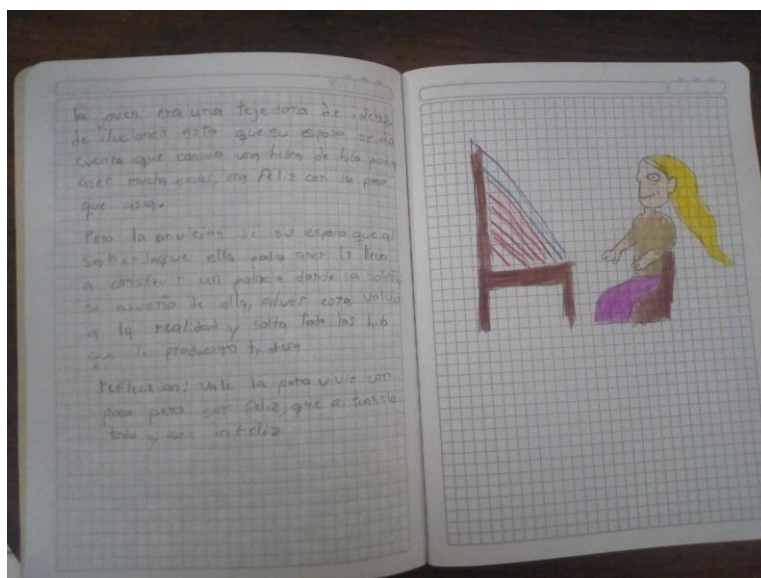 la oven era una tejedora de
de iluciones asta que su esposo se dio
cuenta que con una hebra de hilo podia
aser mucha cosas, era feliz con la poco
que asia.
Pero la anvicion de su esposo que al
saber loque ella podia aser la llevo
a construir un palacio donde la soledad
se de ella, alver esto volvio
a la realidad y solto toda las hib
que le producian
reflecion: Vale la pena vivir con
poco pero ser feliz, que a tenerlo
todo y ser infeliz